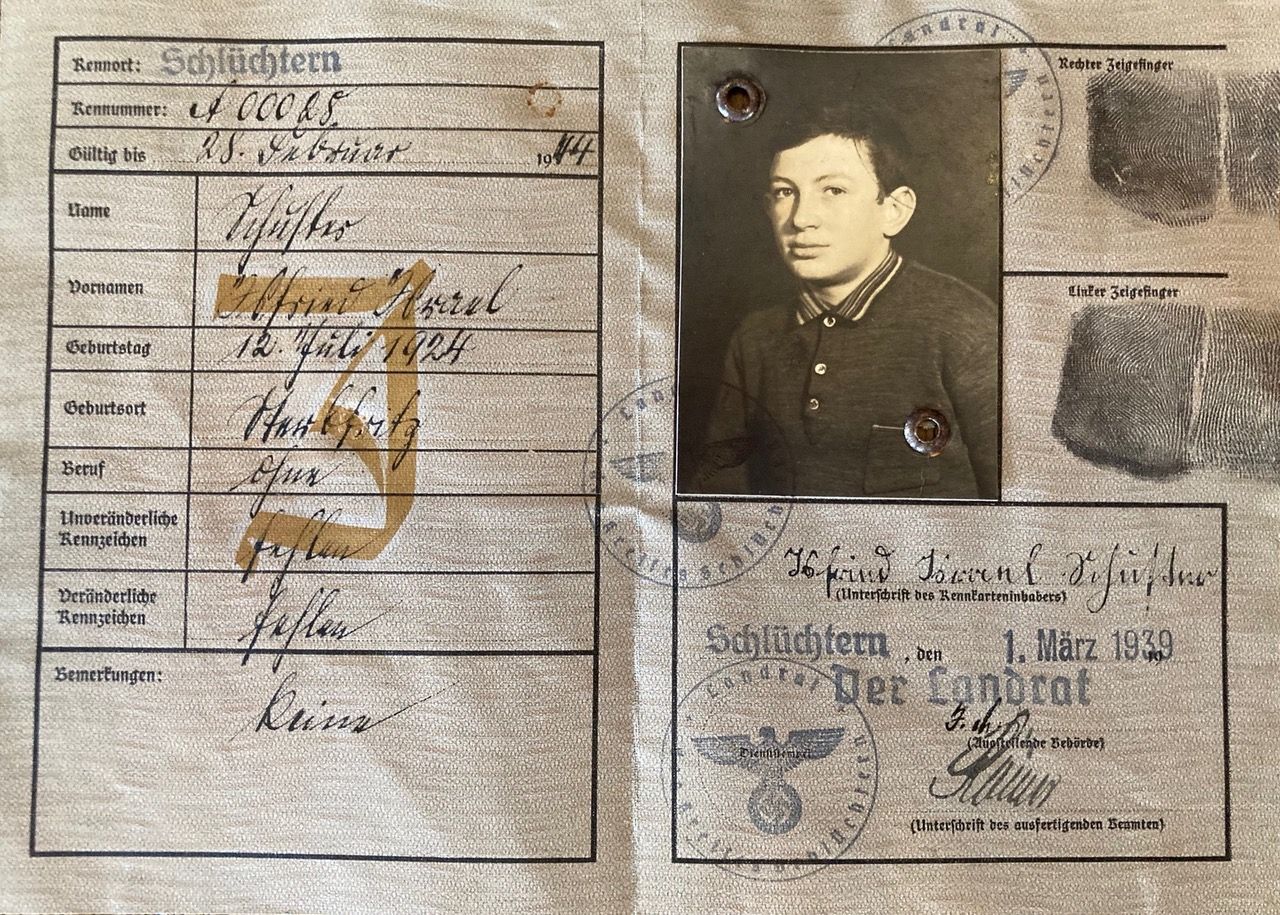 Kennort: Schlüchtern
Kennummer: A 00028
Gültig bis 28. Februar 1944
Name Schuster
Vornamen Isfried Israel
Geburtstag 12. Juli 1924
Geburtsort Sterbfritz
Beruf ohne
Unveränderliche
Kennzeichen fehlen
Veränderliche
Kennzeichen fehlen
Bemerkungen:
keine
J
Rechter Zeigefinger
Linker Zeigefinger
Isfried Israel Schuster
(Unterschrift des Kennkarteninhabers)
Schlüchtern, den 1. März 1939
Der Landrat
(Ausstellende Behörde)
(Unterschrift des ausfertigenden Beamten)
Landrat
Kreises Schlüchtern
Dienststempel